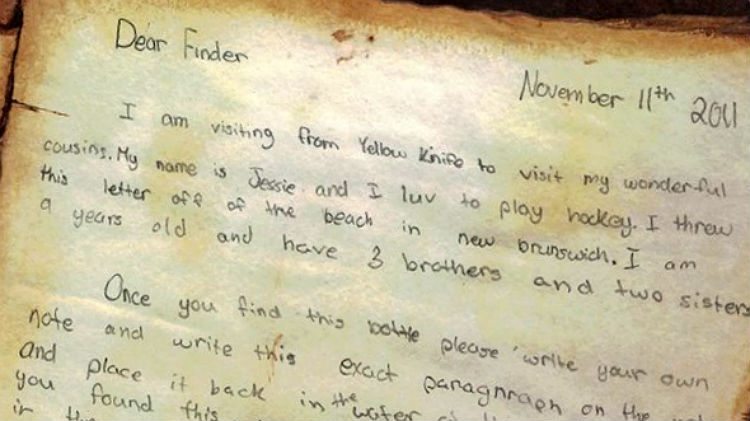 Dear Finder
November 11th 2011
I am visiting from Yellow Knife to visit my wonderful
cousins. My name is Jessie and I luv to play hockey. I threw
this letter off of the beach in new brunswich. I am
9 years old and have 3 brothers and two sisters
Once you find this bottle please write your own
note and write this exact paragnraph on the
and place it back in the water
you found this
in the